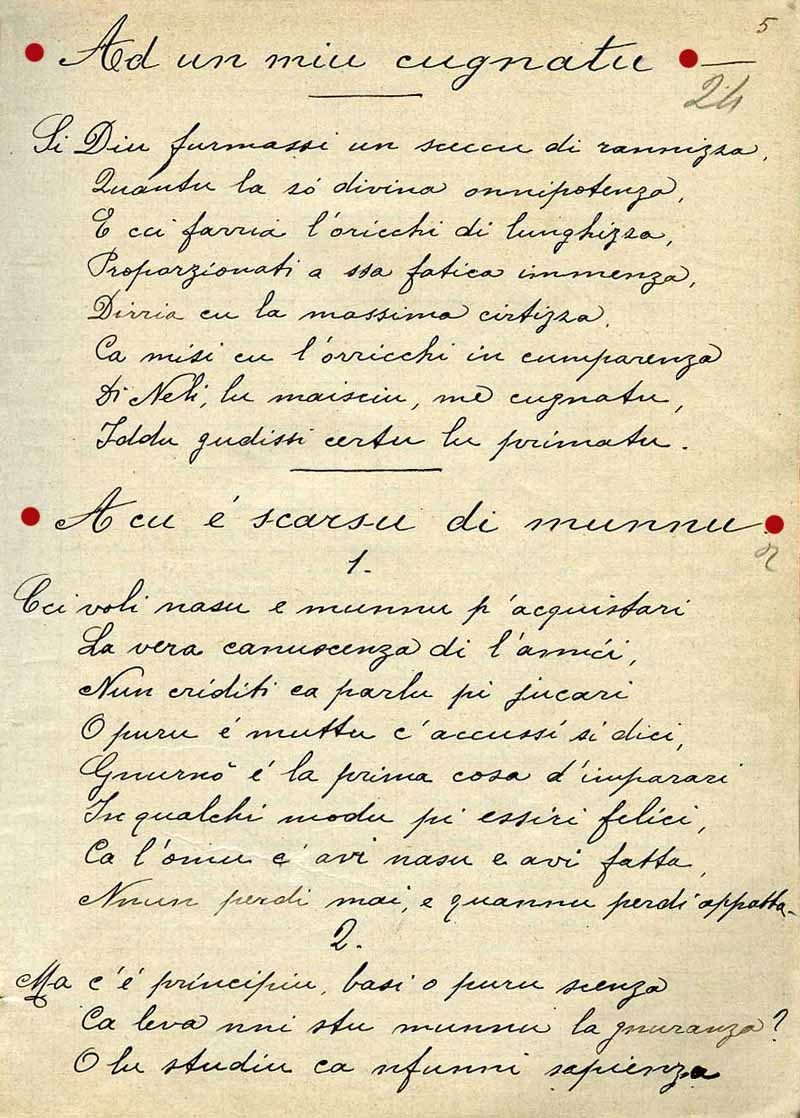 5
Ad un miu cugnatu
24
Si Diu furmassi un sceccu di rannizza,
Quantu la só divina onnipotenza,
E cci farria l'oricchi di lunghizza,
Proporzionati a ssa fatica immenza,
Dirria cu la massima cirtizza,
Ca misi cu l'orricchi in cumparenza
Di Neli, lu maisciu, me cugnatu,
Iddu gudissi certu lu primatu.
A cu é scarsu di munnu
1.
Cci voli nasu e munnu p'acquistari
La vera canuscenza di l'amíci,
Nun criditi ca parlu pi jucari
O puru é muttu c'accussí si dici,
Gnurnò é la prima cosa d'imparari
In qualchi modu pi essiri felici,
Ca l'omu c'avi nasu e avi fatta,
Nnun perdi mai, e quannu perdi appatta.
2.
Ma c'é principiu, basi o puru scenza
Ca leva nni stu munnu la gnuranza?
O lu studiu ca nfunni sapienza